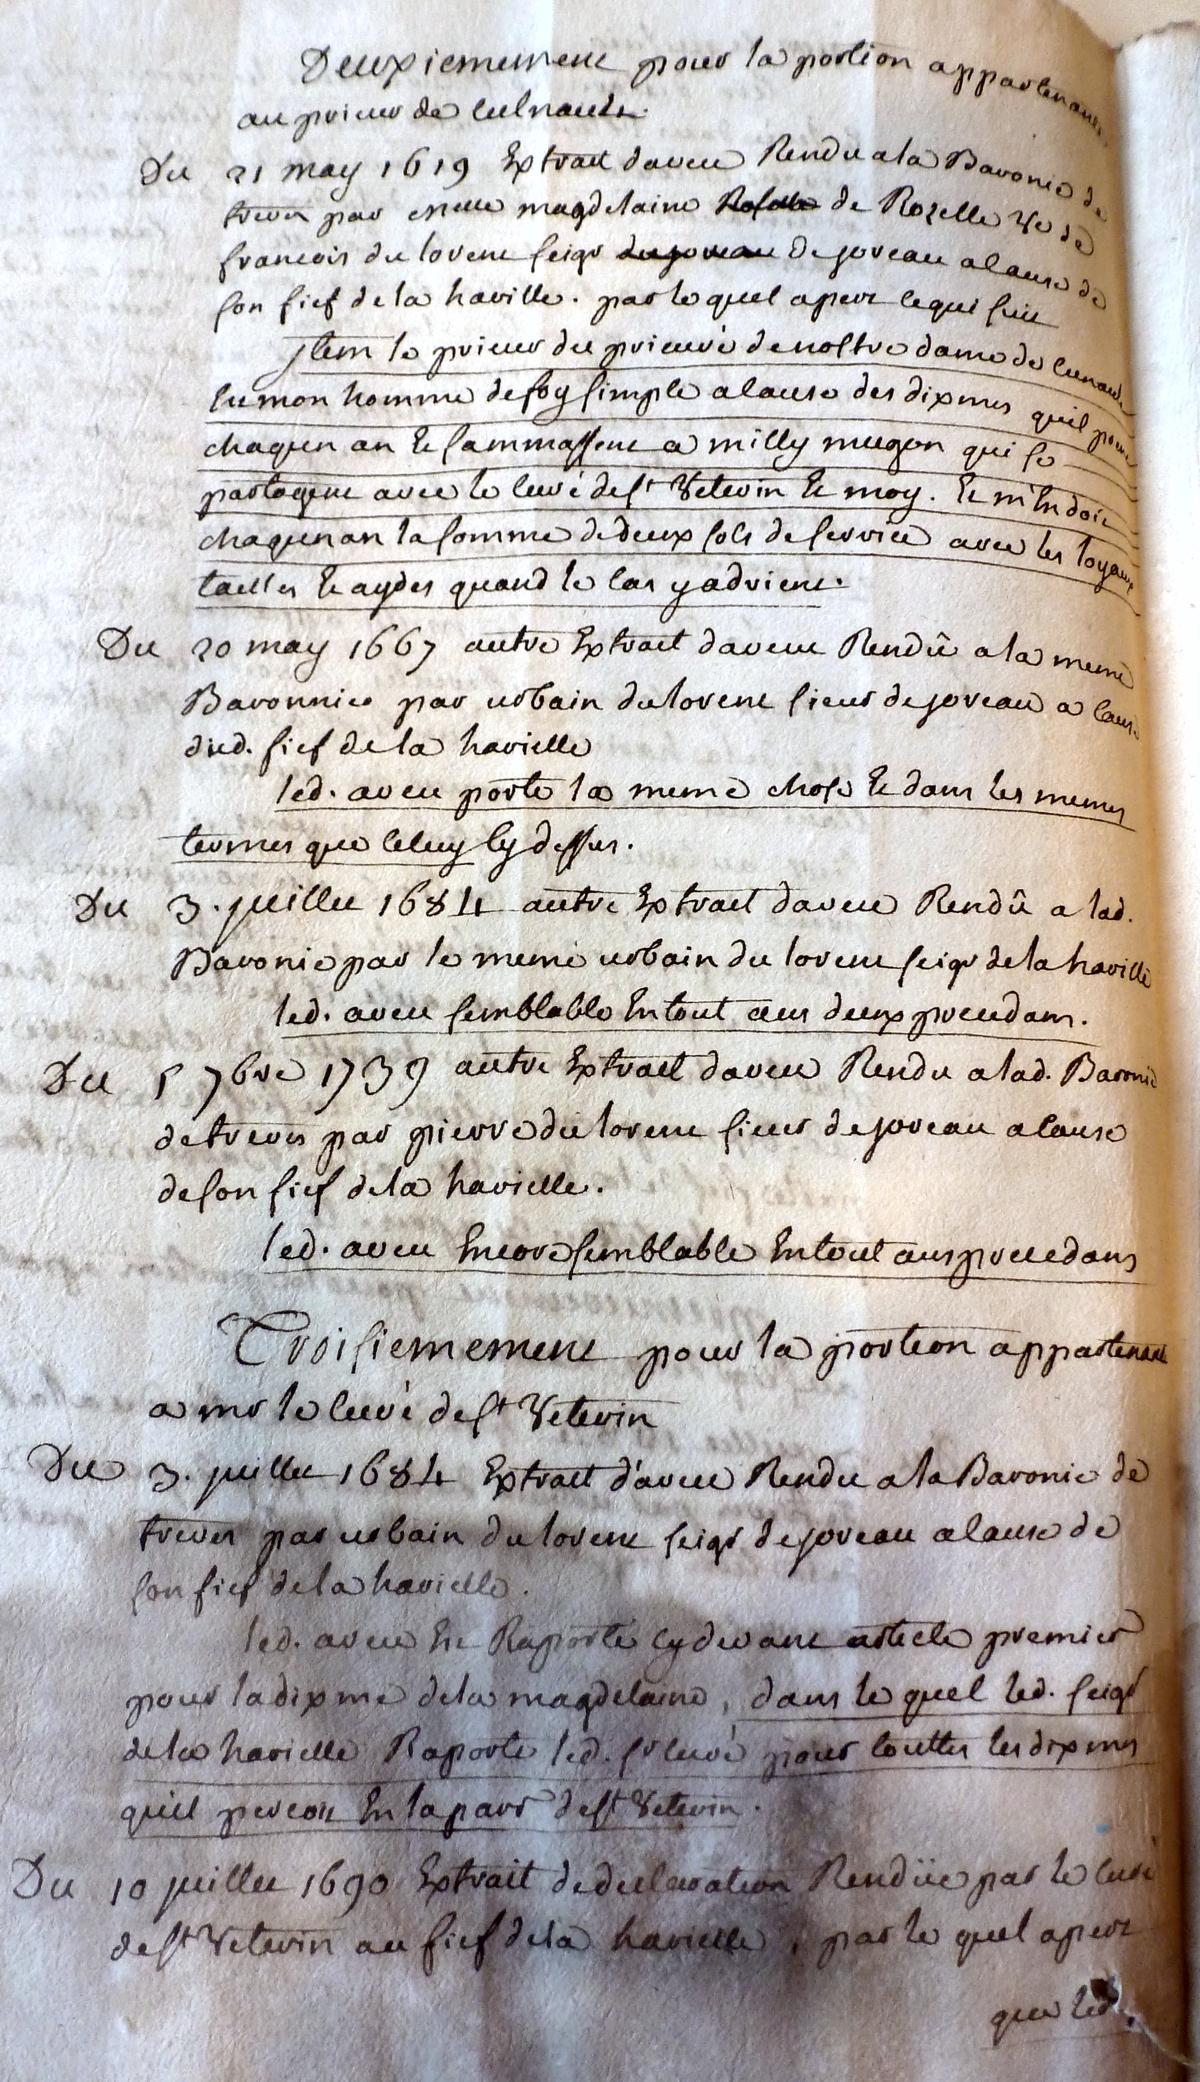 Deuxiemement pour la portion appartenante
au prieur de Culnault.
Du 21 may 1619 Extrait daveu Rendu a la Baronie de
treves par magdelaine de Rozelle Ve de
francois du lorent seigr de joreau a cause de
son fief de la haville. par le quel apert ce qui suit
Jtem le prieur du prieuré de nostre dame de cunault
est mon homme de foy simple a cause des dixmes quil prend
chaqun an & samassent a milly meugon qui se
partagent avec le curé de st Veterin Et moy. Et m'En doit
chaqun an la somme de deux sols de service avec les loyaux
tailles & aydes quand le cas y advient.
Du 20 may 1667 autre Extrait daveu Rendû a la meme
Baronnie par urbain du lorent sieur de joreau a cause
dud. fief de la harielle
led. aveu porte la meme chose & dans les memes
termes que celuy cy dessus.
Du 3. juillet 1684 autre Extrait daveu Rendû a lad.
Baronie par le meme urbain du lorent seigr de la harielle
led. aveu semblable En tout aux deux precedans.
Du 5 7bre 1739 autre Extrait daveu Rendu a lad. Baronie
de treves par pierre du lorent sieur de joreau a cause
de son fief de la harielle.
led. aveu Encore semblable En tout aux precedans
Troisiemement pour la portion appartenant
a mr le curé de st Veterin
Du 3. juillet 1684 Extrait d'aveu Rendu a la Baronie de
treves par urbain du lorent seigr de joreau a cause de
son fief de la harielle.
led. aveu Est Raporté cy devant article premier
pour la dixme de la magdelaine, dans le quel led. seigr
de la harielle Raporte led. sr curé pour touttes les dixmes
quil percoit En la parr de st Veterin.
Du 10 juillet 1690 Extrait de declaration Rendüe par le curé
de st Veterin au fief de la harielle, par le quel apert
que led.